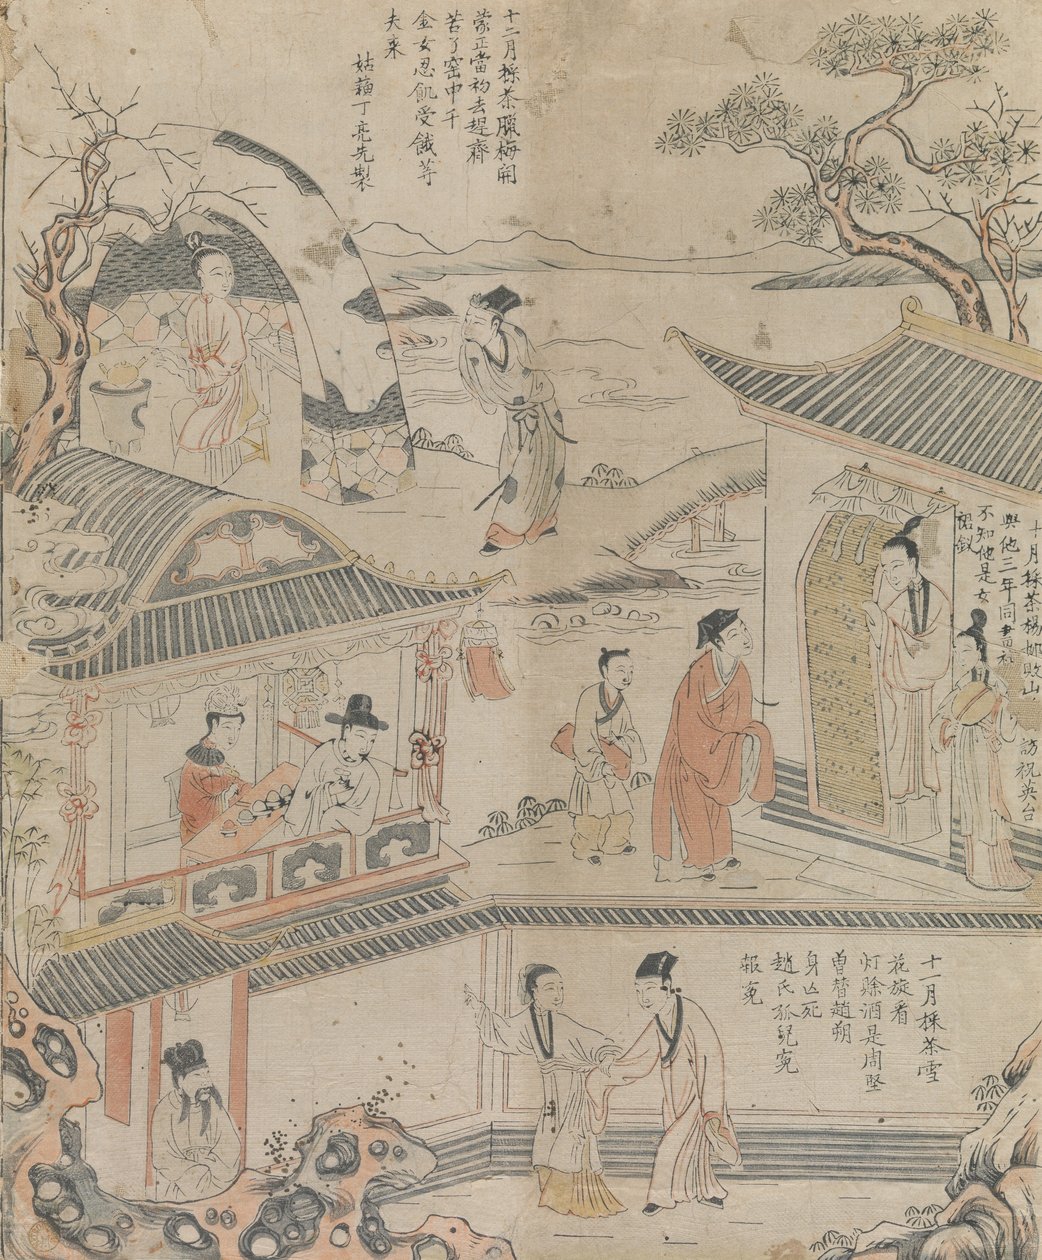 十二月採茶臘梅開
蒙正當初去趕齋
苦了窑中千
金女忍飢受餓等
夫來
姑蘓丁亮先製
十月採茶楊
山
訪祝英台
與他三年同書
不知他是女
裙釵
十一月採茶雪
花旋看
灯賒酒是周堅
曽替趙朔
身亾死
趙氏孤兒寃
報寃